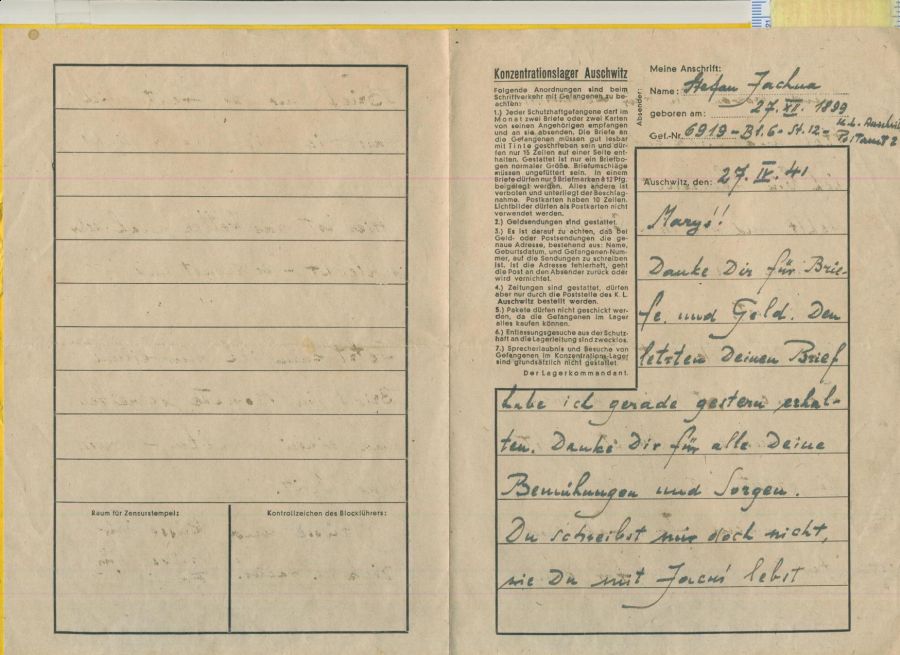 Raum für Zensurstempel:
Kontrollzeichen des Blockführers:
Konzentrationslager Auschwitz
Folgende Anordnungen sind beim
Schriftverkehr mit Gefangenen zu be-
achten:
1.) Jeder Schutzhaftgefangene darf im
Monat zwei Briefe oder zwei Karten
von seinen Angehörigen empfangen
und an sie absenden. Die Briefe an
die Gefangenen müssen gut lesbar
mit Tinte geschrieben sein und dür-
fen nur 15 Zeilen auf einer Seite ent-
halten. Gestattet ist nur ein Briefbo-
gen normaler Größe. Briefumschläge
müssen ungefüttert sein. In einem
Briefe dürfen nur 5 Briefmarken à 12 Pfg.
beigelegt werden. Alles andere ist
verboten und unterliegt der Beschlag-
nahme. Postkarten haben 10 Zeilen.
Lichtbilder dürfen als Postkarten nicht
verwendet werden.
2.) Geldsendungen sind gestattet.
3.) Es ist darauf zu achten, daß bei
Geld- oder Postsendungen die ge-
naue Adresse, bestehend aus: Name,
Geburtsdatum, und Gefangenen-Num-
mer, auf die Sendungen zu schreiben
ist. Ist die Adresse fehlerhaft, geht
die Post an den Absender zurück oder
wird vernichtet.
4.) Zeitungen sind gestattet, dürfen
aber nur durch die Poststelle des K. L.
Auschwitz bestellt werden.
5.) Pakete dürfen nicht geschickt wer-
den, da die Gefangenen im Lager
alles kaufen können.
6.) Entlassungsgesuche aus der Schutz-
haft an die Lagerleitung sind zwecklos.
7.) Sprecherlaubnis und Besuche von
Gefangenen im Konzentrations-Lager
sind grundsätzlich nicht gestattet.
Der Lagerkommandant.
Absender:
Meine Anschrift:
Name: Stefan Jachna
geboren am: 27. XII. 1899
Gef.-Nr. 6919 - Bl. 6 - St. 12 -
Auschwitz, den: 27. IV. 41
Maryś!
Danke Dir für Brie-
fe und Geld. Den
letzten Deinen Brief
habe ich gerade gestern erhal-
ten. Danke Dir für alle Deine
Bemühungen und Sorgen.
Du schreibst mir doch nicht,
wie Du mit Jacuś lebst